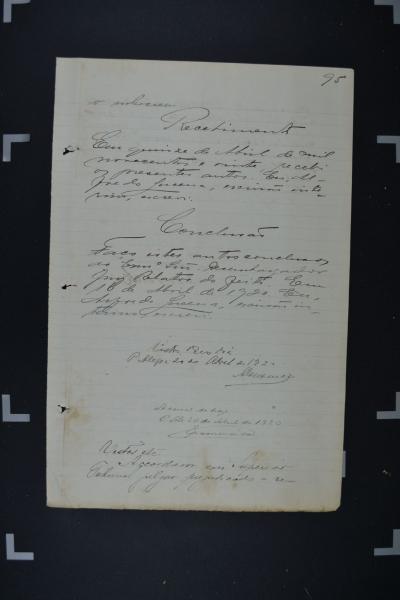 95
o subscrevi.
Recebimento
Em quinze de Abril de mil
novecentos e vinte, recebi
os presentes autos. Eu, Al-
fredo Lucena, escrivão inte-
rino, escrevi.
Conclusão
Faço estes autos conclusos
ao Exmo Snr. Desembargador
Relator do feito. Em
16 de Abril de 1920. Eu,
Alfredo Lucena, escrivão in-
terino, escrevi.
Vistos
de Abril de 1920
de Abril de 1920
Vistos, etc.
Accordam em Superior
Tribunal julgar prejudicado o re-